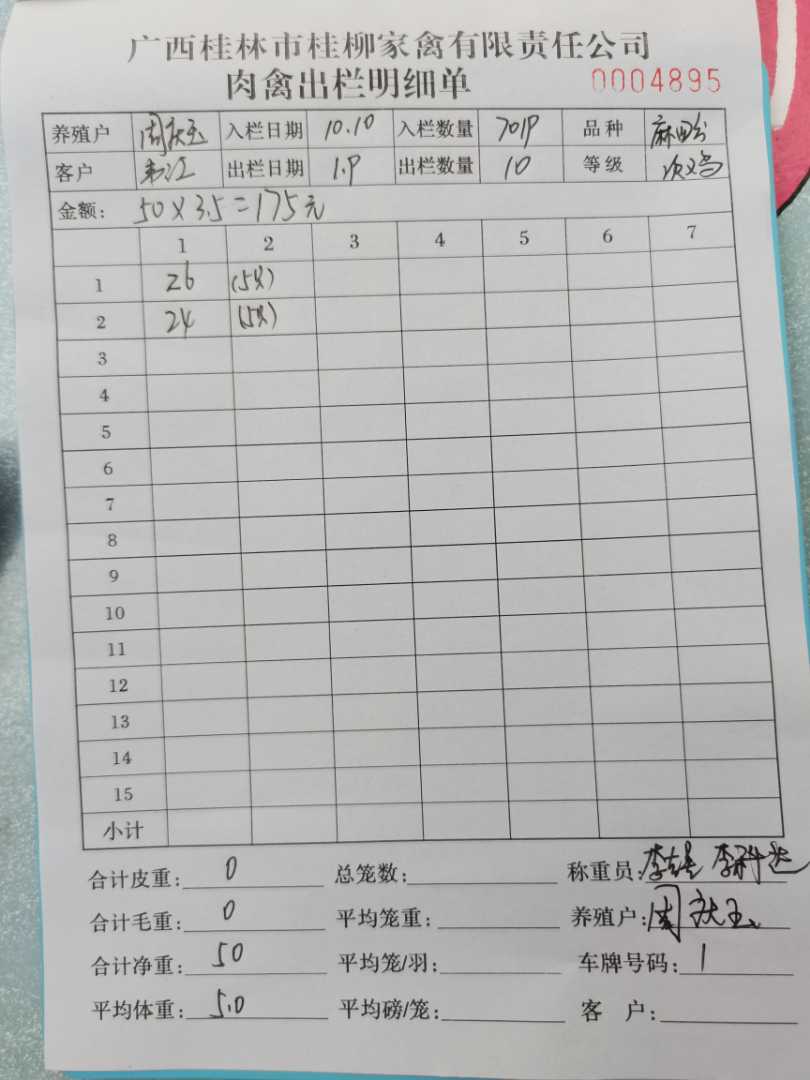 广西桂林市桂柳家禽有限责任公司
肉禽出栏明细单 0004895
养殖户 周庆玉 入栏日期 10.10 入栏数量 7019 品种 麻
客户 韦江 出栏日期 1.9 出栏数量 10 等级 次鸡
金额: 50×3.5=175元
1 2 3 4 5 6 7
1 26 (5只)
2 24 (5只)
3
4
5
6
7
8
9
10
11
12
13
14
15
小计
合计皮重: 0 总笼数: 称重员: 李
合计毛重: 0 平均笼重: 养殖户: 周庆玉
合计净重: 50 平均笼/羽: 车牌号码: 1
平均体重: 5.0 平均磅/笼: 客 户: